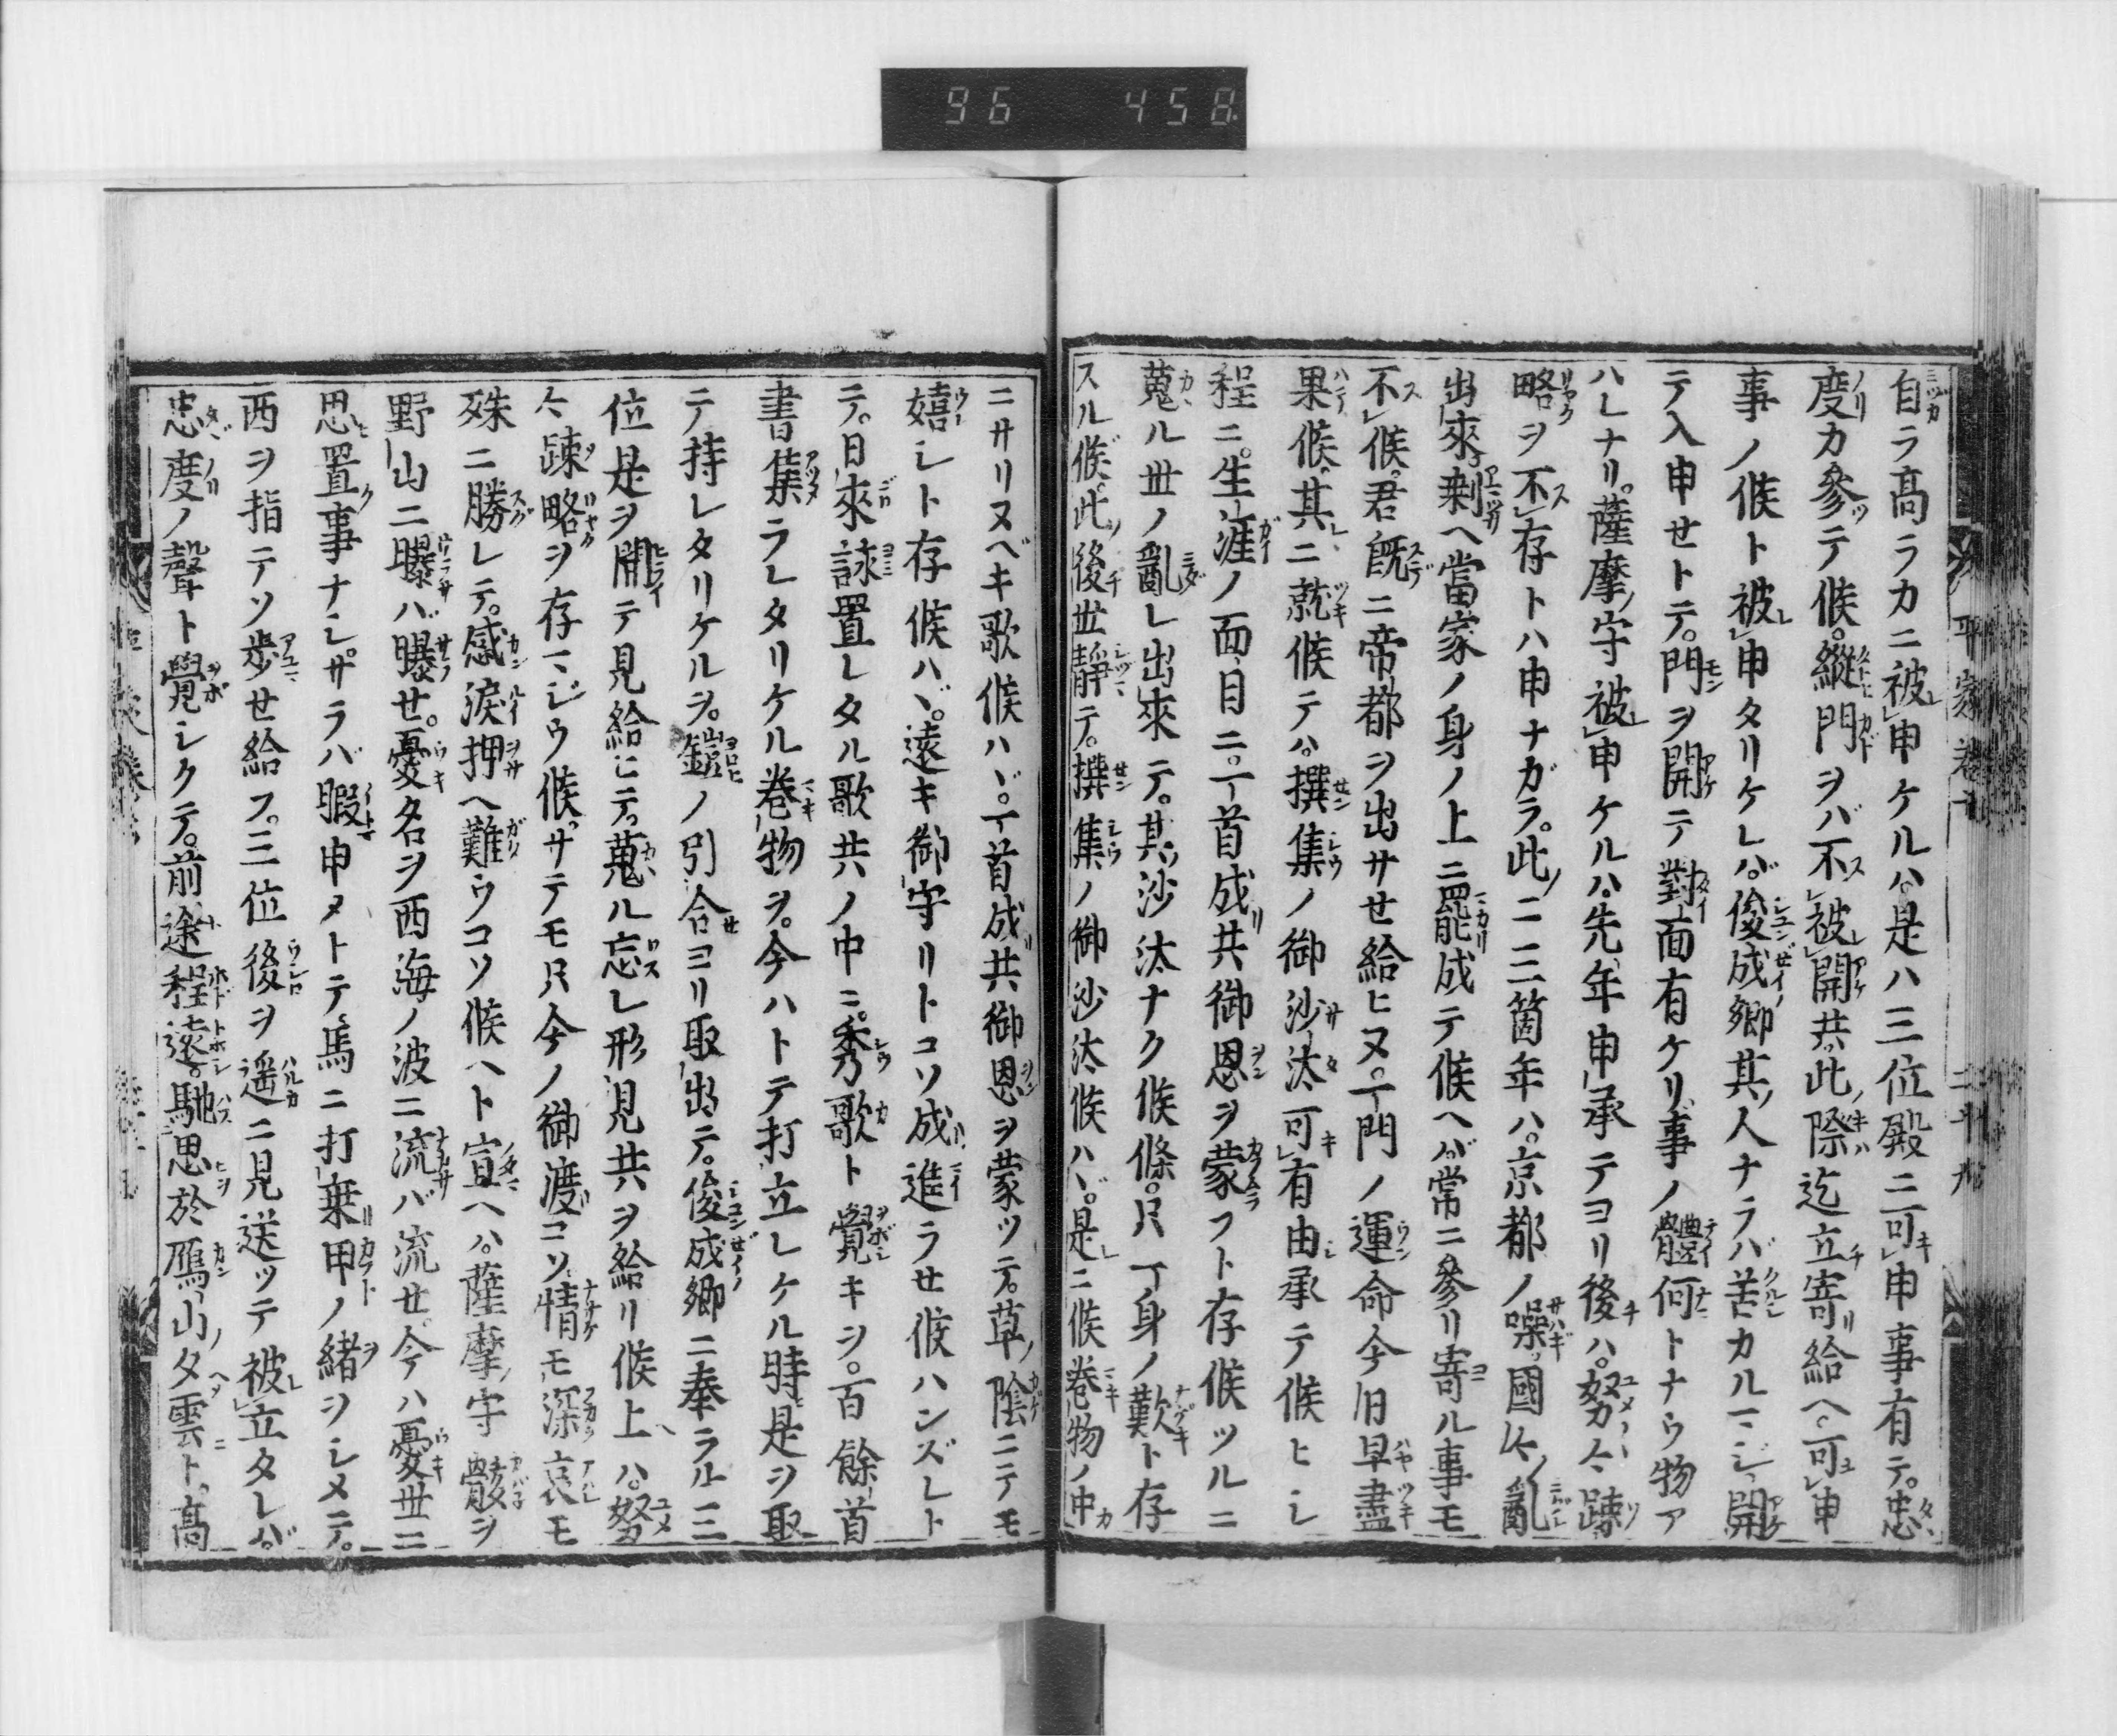 96 458
平家巻七
二十九
自ラ高ラカニ被レ申ケルハ。是ハ三位殿ニ可レ申事有テ。忠
度カ參テ候。縱門ヲバ不レ被レ開共。此際迄立寄給ヘ。可レ申
事ノ候ト被レ申タリケレバ。俊成卿其人ナラバ苦カルマジ。開
テ入申セトテ。門ヲ開テ對面有ケリ。事ノ體何トナウ物ア
ハレナリ。薩摩守被レ申ケルハ。先年申承テヨリ後ハ。努々疎
略ヲ不レ存トハ申ナガラ。此二三箇年ハ。京都ノ噪國々ノ亂
出來。剩ヘ當家ノ身ノ上ニ罷成テ候ヘバ。常ニ參リ寄ル事モ
不レ候。君既ニ帝都ヲ出サセ給ヒヌ。一門ノ運命今日早盡
果候。其ニ就候テハ。撰集ノ御沙汰可レ有由承テ候ヒシ
程ニ。生涯ノ面目ニ。一首成共御恩ヲ蒙フト存候ツルニ
蒐ル世ノ亂レ出來テ。其沙汰ナク候條。只一身ノ歎ト存
スル候。此後世靜テ。撰集ノ御沙汰候ハヾ。是ニ候巻物ノ中
ニサリヌベキ歌候ハヾ。一首成共御恩ヲ蒙ツテ。草ノ陰ニテモ
嬉シト存候ハヾ。遠キ御守リトコソ成進ラセ候ハンズレト
テ。日來詠置レタル歌共ノ中ニ。秀歌ト覺キヲ。百餘首
書集ラレタリケル巻物ヲ。今ハトテ打立レケル時是ヲ取
テ持レタリケルヲ。鎧ノ引合ヨリ取出テ。俊成卿ニ奉ラル三
位是ヲ開テ見給ヒテ。蒐ル忘レ形見共ヲ給リ候上ハ。努
々疎略ヲ存マジウ候。サテモ只今ノ御渡コソ。情モ深哀モ
殊ニ勝レテ。感涙押ヘ難ウコソ候ヘト宣ヘハ。薩摩守骸ヲ
野山ニ曝バ曝セ。憂名ヲ西海ノ波ニ流バ流セ。今ハ憂世ニ
思置事ナシ。サラバ暇申メトテ。馬ニ打乗甲ノ緒ヲシメテ。
西ヲ指テソ歩セ給フ。三位後ヲ遥ニ見送ツテ被レ立タレバ。
忠度ノ聲ト覺シクテ。前途程遠。馳思於鴈山ノ夕雲ト。高